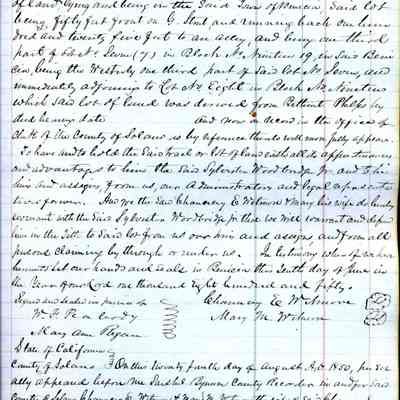 of Land lying and being in the Said Town of Benicia Said lot
being, fifty feet front on G. Street and running back one hun
dred and twenty five feet to an alley, and being one third
part of Lot No. Seven (7) in Block No. Nineteen 19, in Said Beni
cia, being the Westerly one third part of Said Lot No. Seven, and
immediately adjoining to Lot No. Eight in Block No. Nineteen
which Said lot of Land was derived from Phelps by
deed bearing date and now on record in the office of
Clerk of the County of Solano as by reference thereto will more fully appear.
To have and to hold the Said tract or lot of land with all its appurtenances
and advantages to him the Said Sylvester Woodbridge Jr. and to his
heirs and assigns, from us, our Administrators and legal representa
tives forever. And we the Said Chauncey E Wetmore & Mary his wife do hereby
covenant with the Said Sylvester Woodbridge Jr. that we will warrant and defend
him in the title to Said lot from us our heirs and assigns, and from all
persons claiming by through or under us. In testimony whereof we have
hereunto Set our hands and seals in Benicia this Tenth day of June in
the Year of our Lord one thousand Eight hundred and fifty.
Signed and Sealed in presence of Chauncey E Wetmore
W. F. Mary M. Wetmore
Mary Ann Ryan
State of California
County of Solano On this Twenty fourth day of August, A.D. 1850, person
ally appeared before me County Recorder in and for Said
County of Solano Chauncey E. Wetmore & Mary M. Wetmore